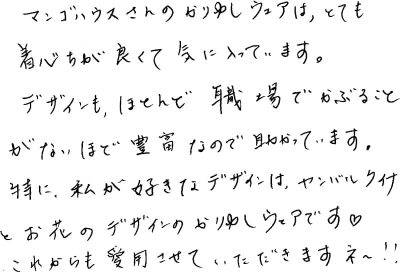 マンゴハウスさんのかりゆしウェアは、とても
着心ちが良くて気に入っています。
デザインも、ほとんど職場でかぶること
がないほど豊富なので助かっています。
特に、私が好きなデザインは、ヤンバルクイナ
とお花のデザインのかりゆしウェアです♡
これからも愛用させていただきますネ〜!!